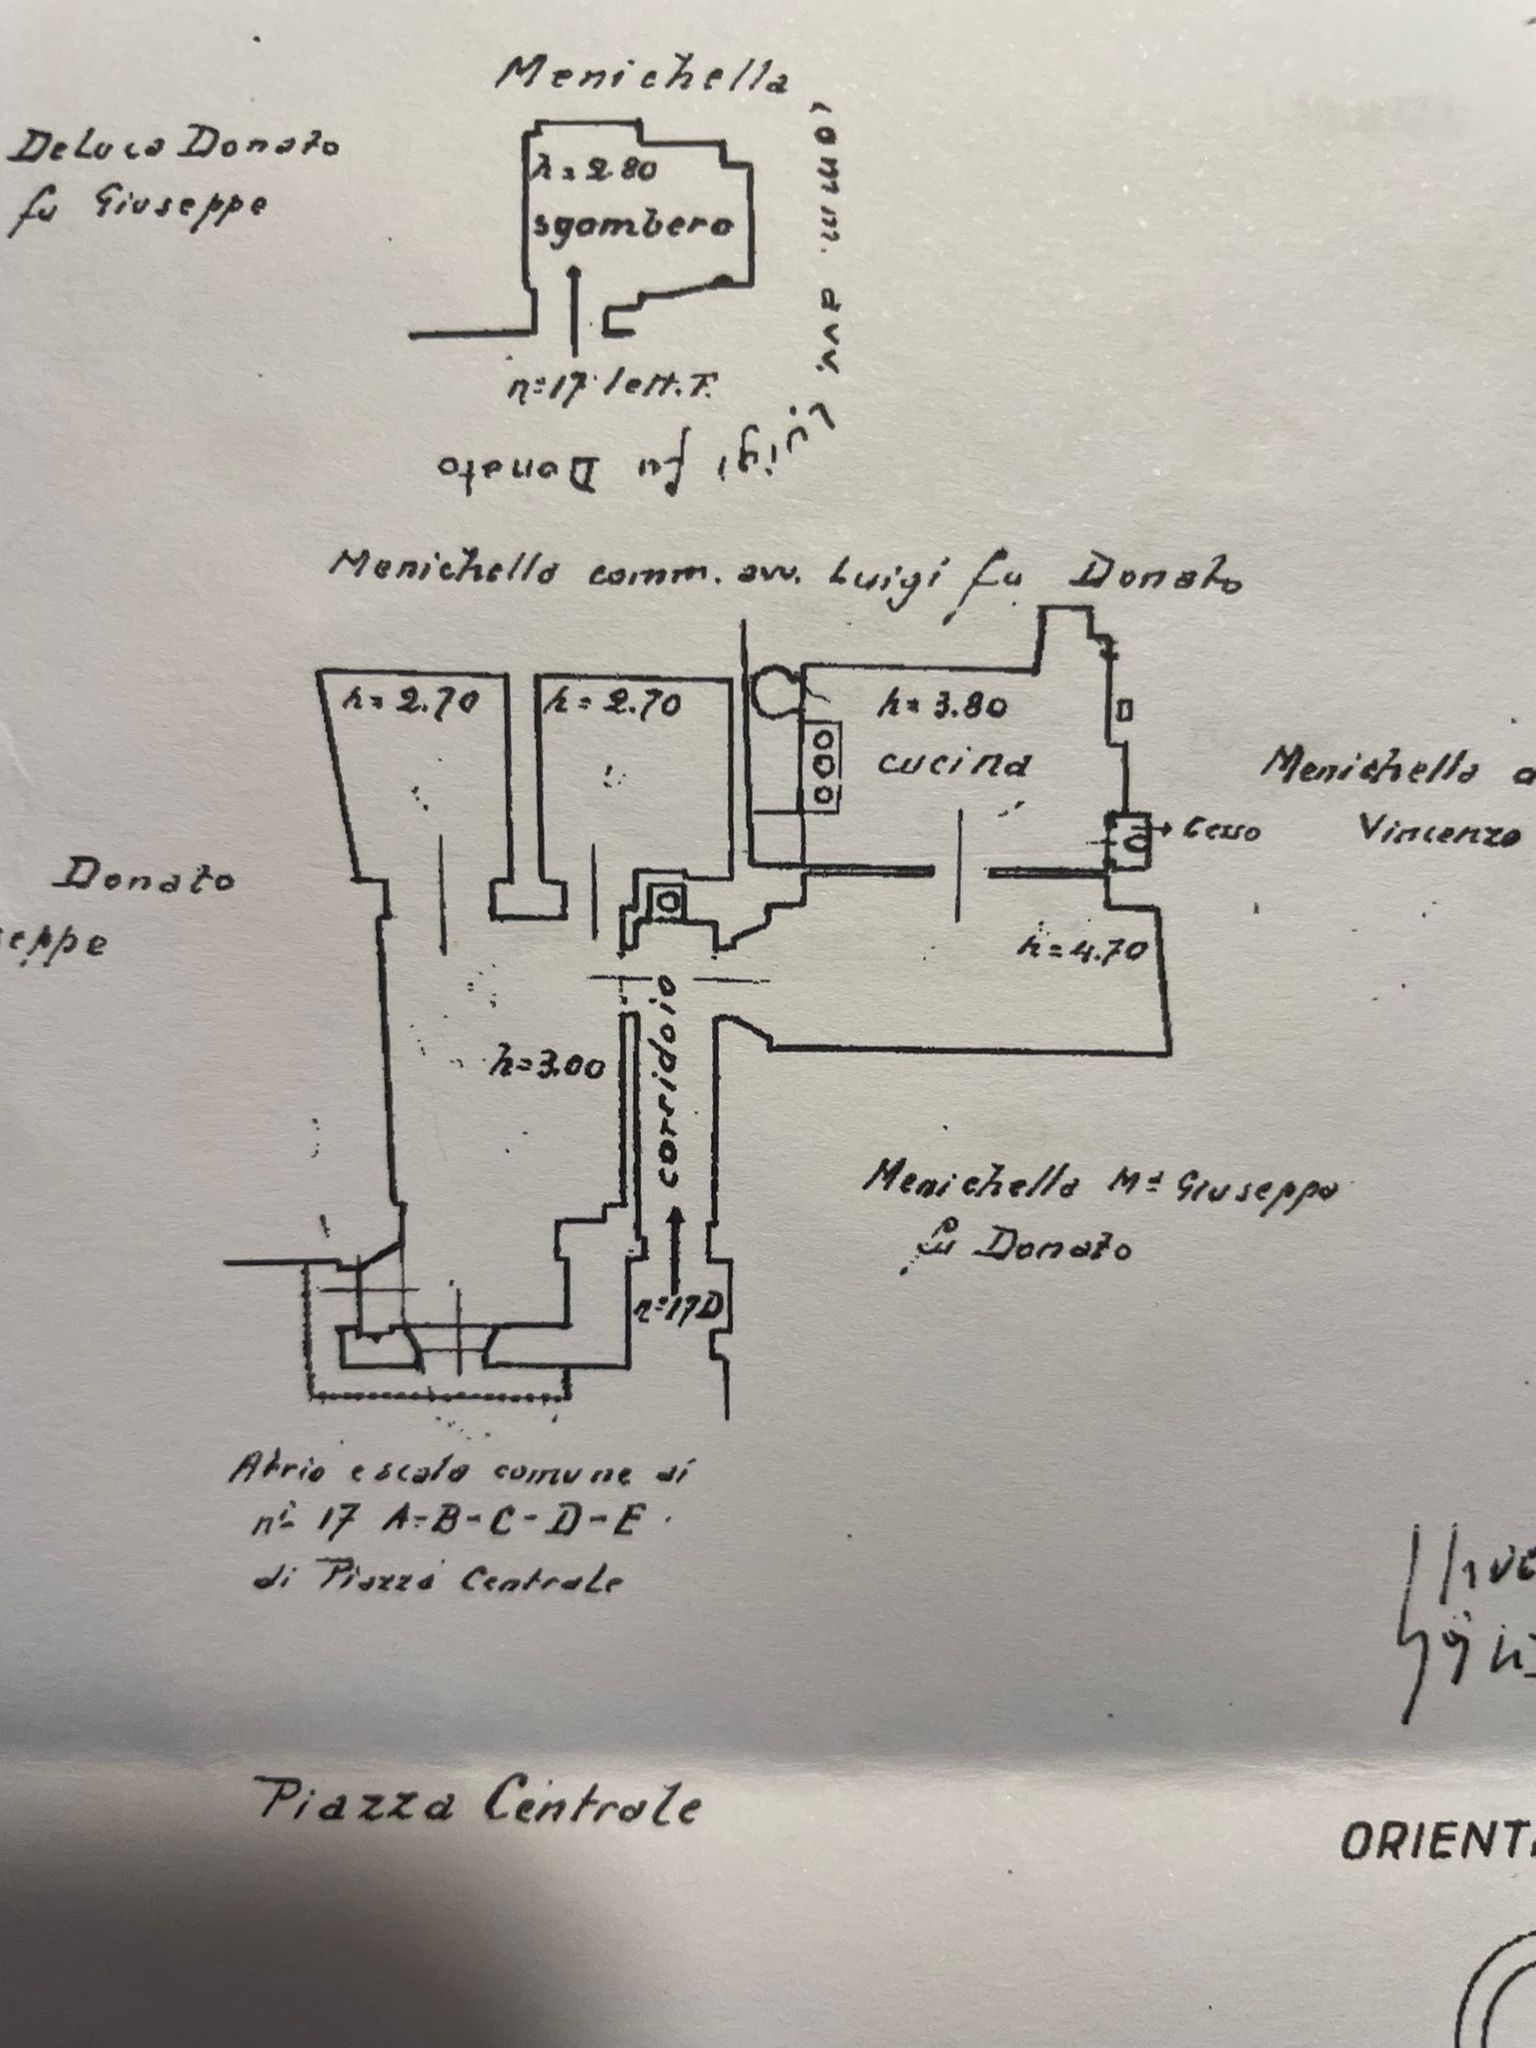 Menichella
comm. avv.
Luigi fu Donato
DeLuca Donato
fu Giuseppe
h=2.80
sgombero
n=17 lett. F.
Menichella comm. avv. Luigi fu Donato
h=2.70
h=2.70
h=3.80
cucina
Menichella a
Vincenzo
Cesso
Donato
seppe
h=4.70
h=3.00
corridoio
Menichella Mª Giuseppa
fu Donato
n=17D
Atrio e scala comune ai
ni 17 A-B-C-D-E
di Piazza Centrale
Piazza Centrale
ORIENTA